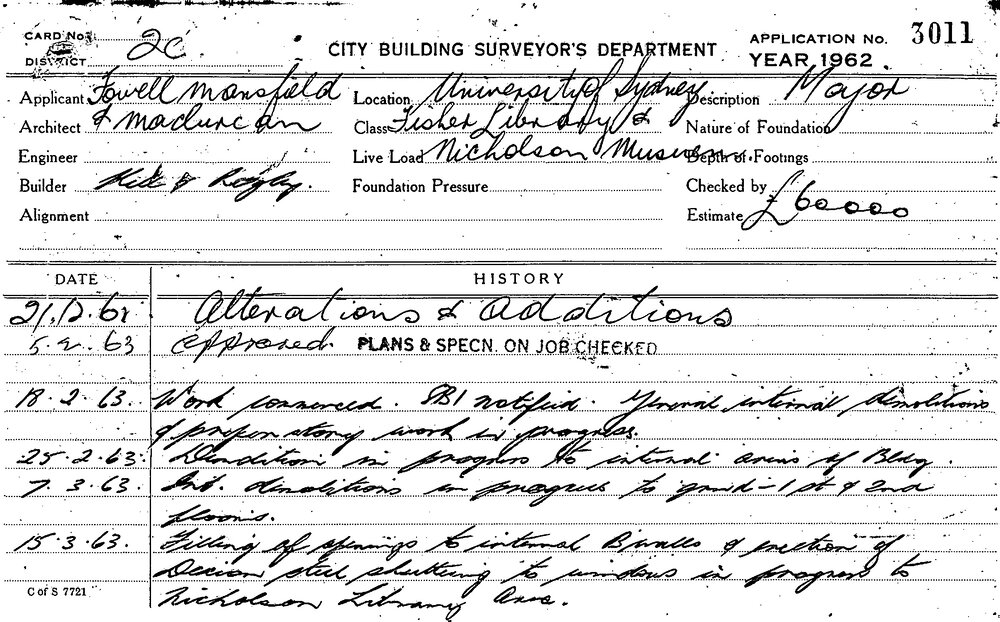 CARD No. 2C
DISTRICT
CITY BUILDING SURVEYOR'S DEPARTMENT
APPLICATION No. 3011
YEAR 1962.
Applicant Fowell Mansfield
Location University of Sydney.
Description Major
Architect & Maclurcan
Class Fisher Library &
Nature of Foundation
Engineer
Live Load Nicholson Museum.
Depth of Footings
Builder &
Foundation Pressure
Checked by
Alignment
Estimate £60000
DATE
HISTORY
21.12.62 Alterations & additions
5.2.63 approved. PLANS & SPECN. ON JOB CHECKED
18.2.63. Work commenced. SBI notified. General internal demolitions
& preparatory work in progress.
25.2.63. Demolition in progress to internal areas of Bldg.
7.3.63. Int. demolitions in progress to grnd - 1st & 2nd
floors.
15.3.63. Filling of openings to internal B/walls & erection of
steel shuttering to windows in progress to
Nicholson Library Area.
C of S 7721